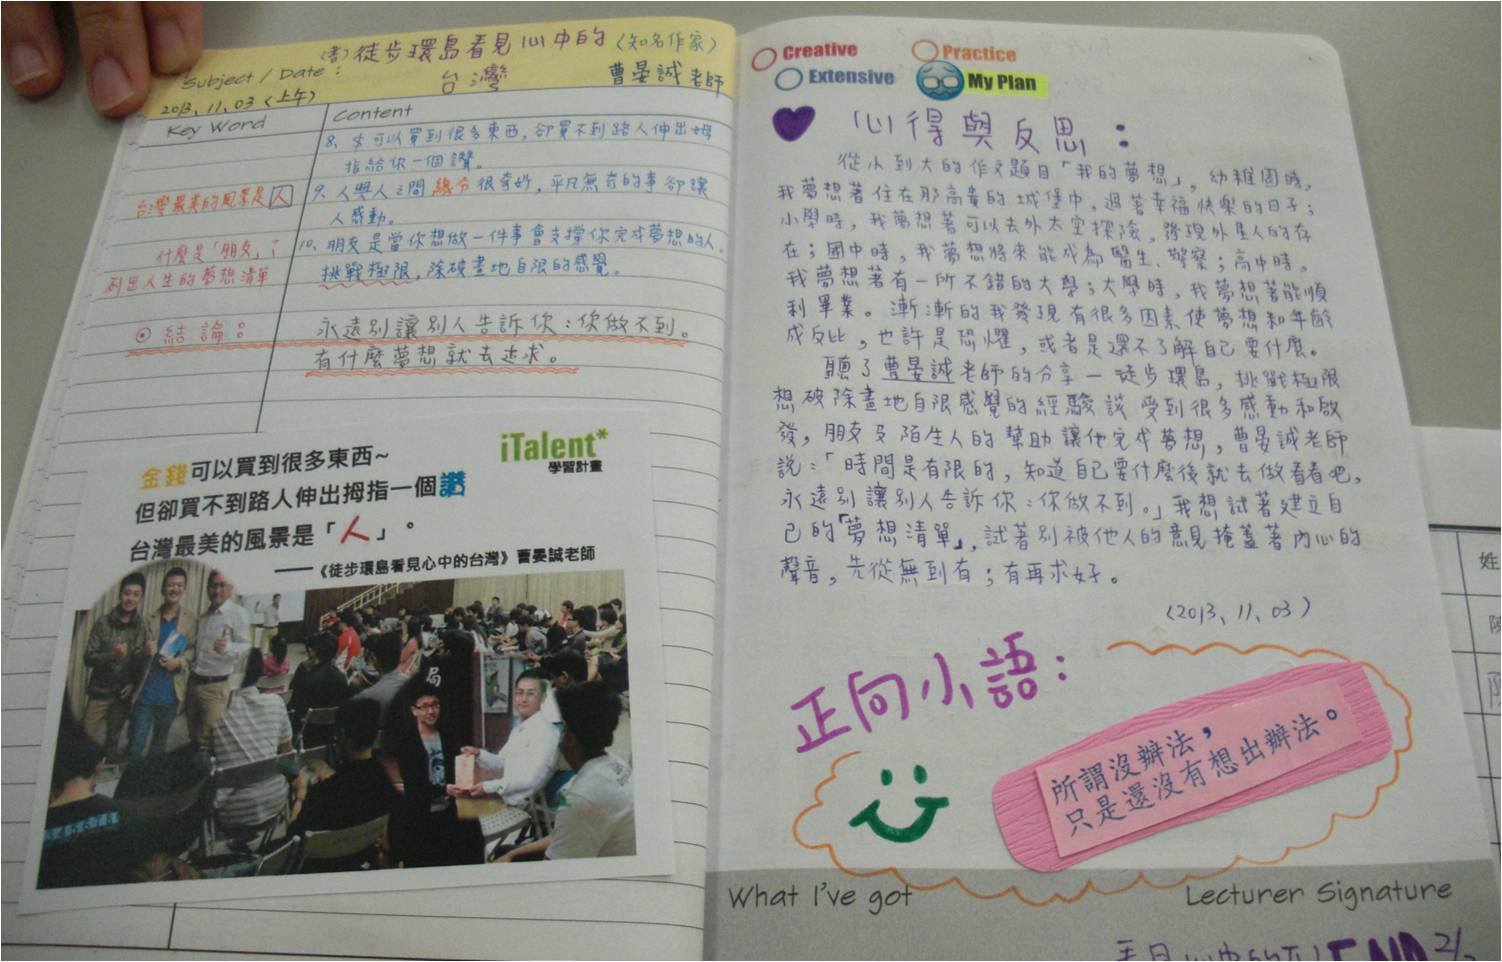 (書)徒步環島看見心中的(知名作家)
Subject / Date :
台灣 曹晏誠老師
2013、11、03 (上午)
Key Word
Content
8、$可以買到很多東西，卻買不到路人伸出姆
指給你一個讚。
台灣最美的風景是人
9、人與人之間緣分很奇妙，平凡無奇的事卻讓
人感動。
什麼是「朋友」？
列出人生的夢想清單
10、朋友是當你想做一件事會支撐你完成夢想的人。
挑戰極限，除破畫地自限的感覺。
⊙結論：
永遠別讓別人告訴你：你做不到。
有什麼夢想就去追求。
iTalent*
學習計畫
金錢可以買到很多東西~
但卻買不到路人伸出拇指一個讚
台灣最美的風景是「人」。
——《徒步環島看見心中的台灣》曹晏誠老師
局
345678
Creative
Practice
Extensive
My Plan
心得與反思：
從小到大的作文題目「我的夢想」，幼稚園時，
我夢想著住在那高貴的城堡中，過著幸福快樂的日子；
小學時，我夢想著可以去外太空探險，發現外星人的存
在；國中時，我夢想將來能成為醫生、警察；高中時，
我夢想著有一所不錯的大學；大學時，我夢想著能順
利畢業。漸漸的我發現有很多因素使夢想和年齡
成反比，也許是恐懼，或者是還不了解自己要什麼。
聽了曹晏誠老師的分享－徒步環島，挑戰極限
想破除畫地自限感覺的經驗談受到很多感動和啟
發，朋友及陌生人的幫助讓他完成夢想，曹晏誠老師
說：「時間是有限的，知道自己要什麼後就去做看看吧，
永遠別讓別人告訴你：你做不到。」我想試著建立自
己的「夢想清單」，試著別被他人的意見掩蓋著內心的
聲音，先從無到有；有再求好。
(2013、11、03)
正向小語：
所謂沒辦法，
只是還沒有想出辦法。
What I've got
Lecturer Signature
END 2/
姓